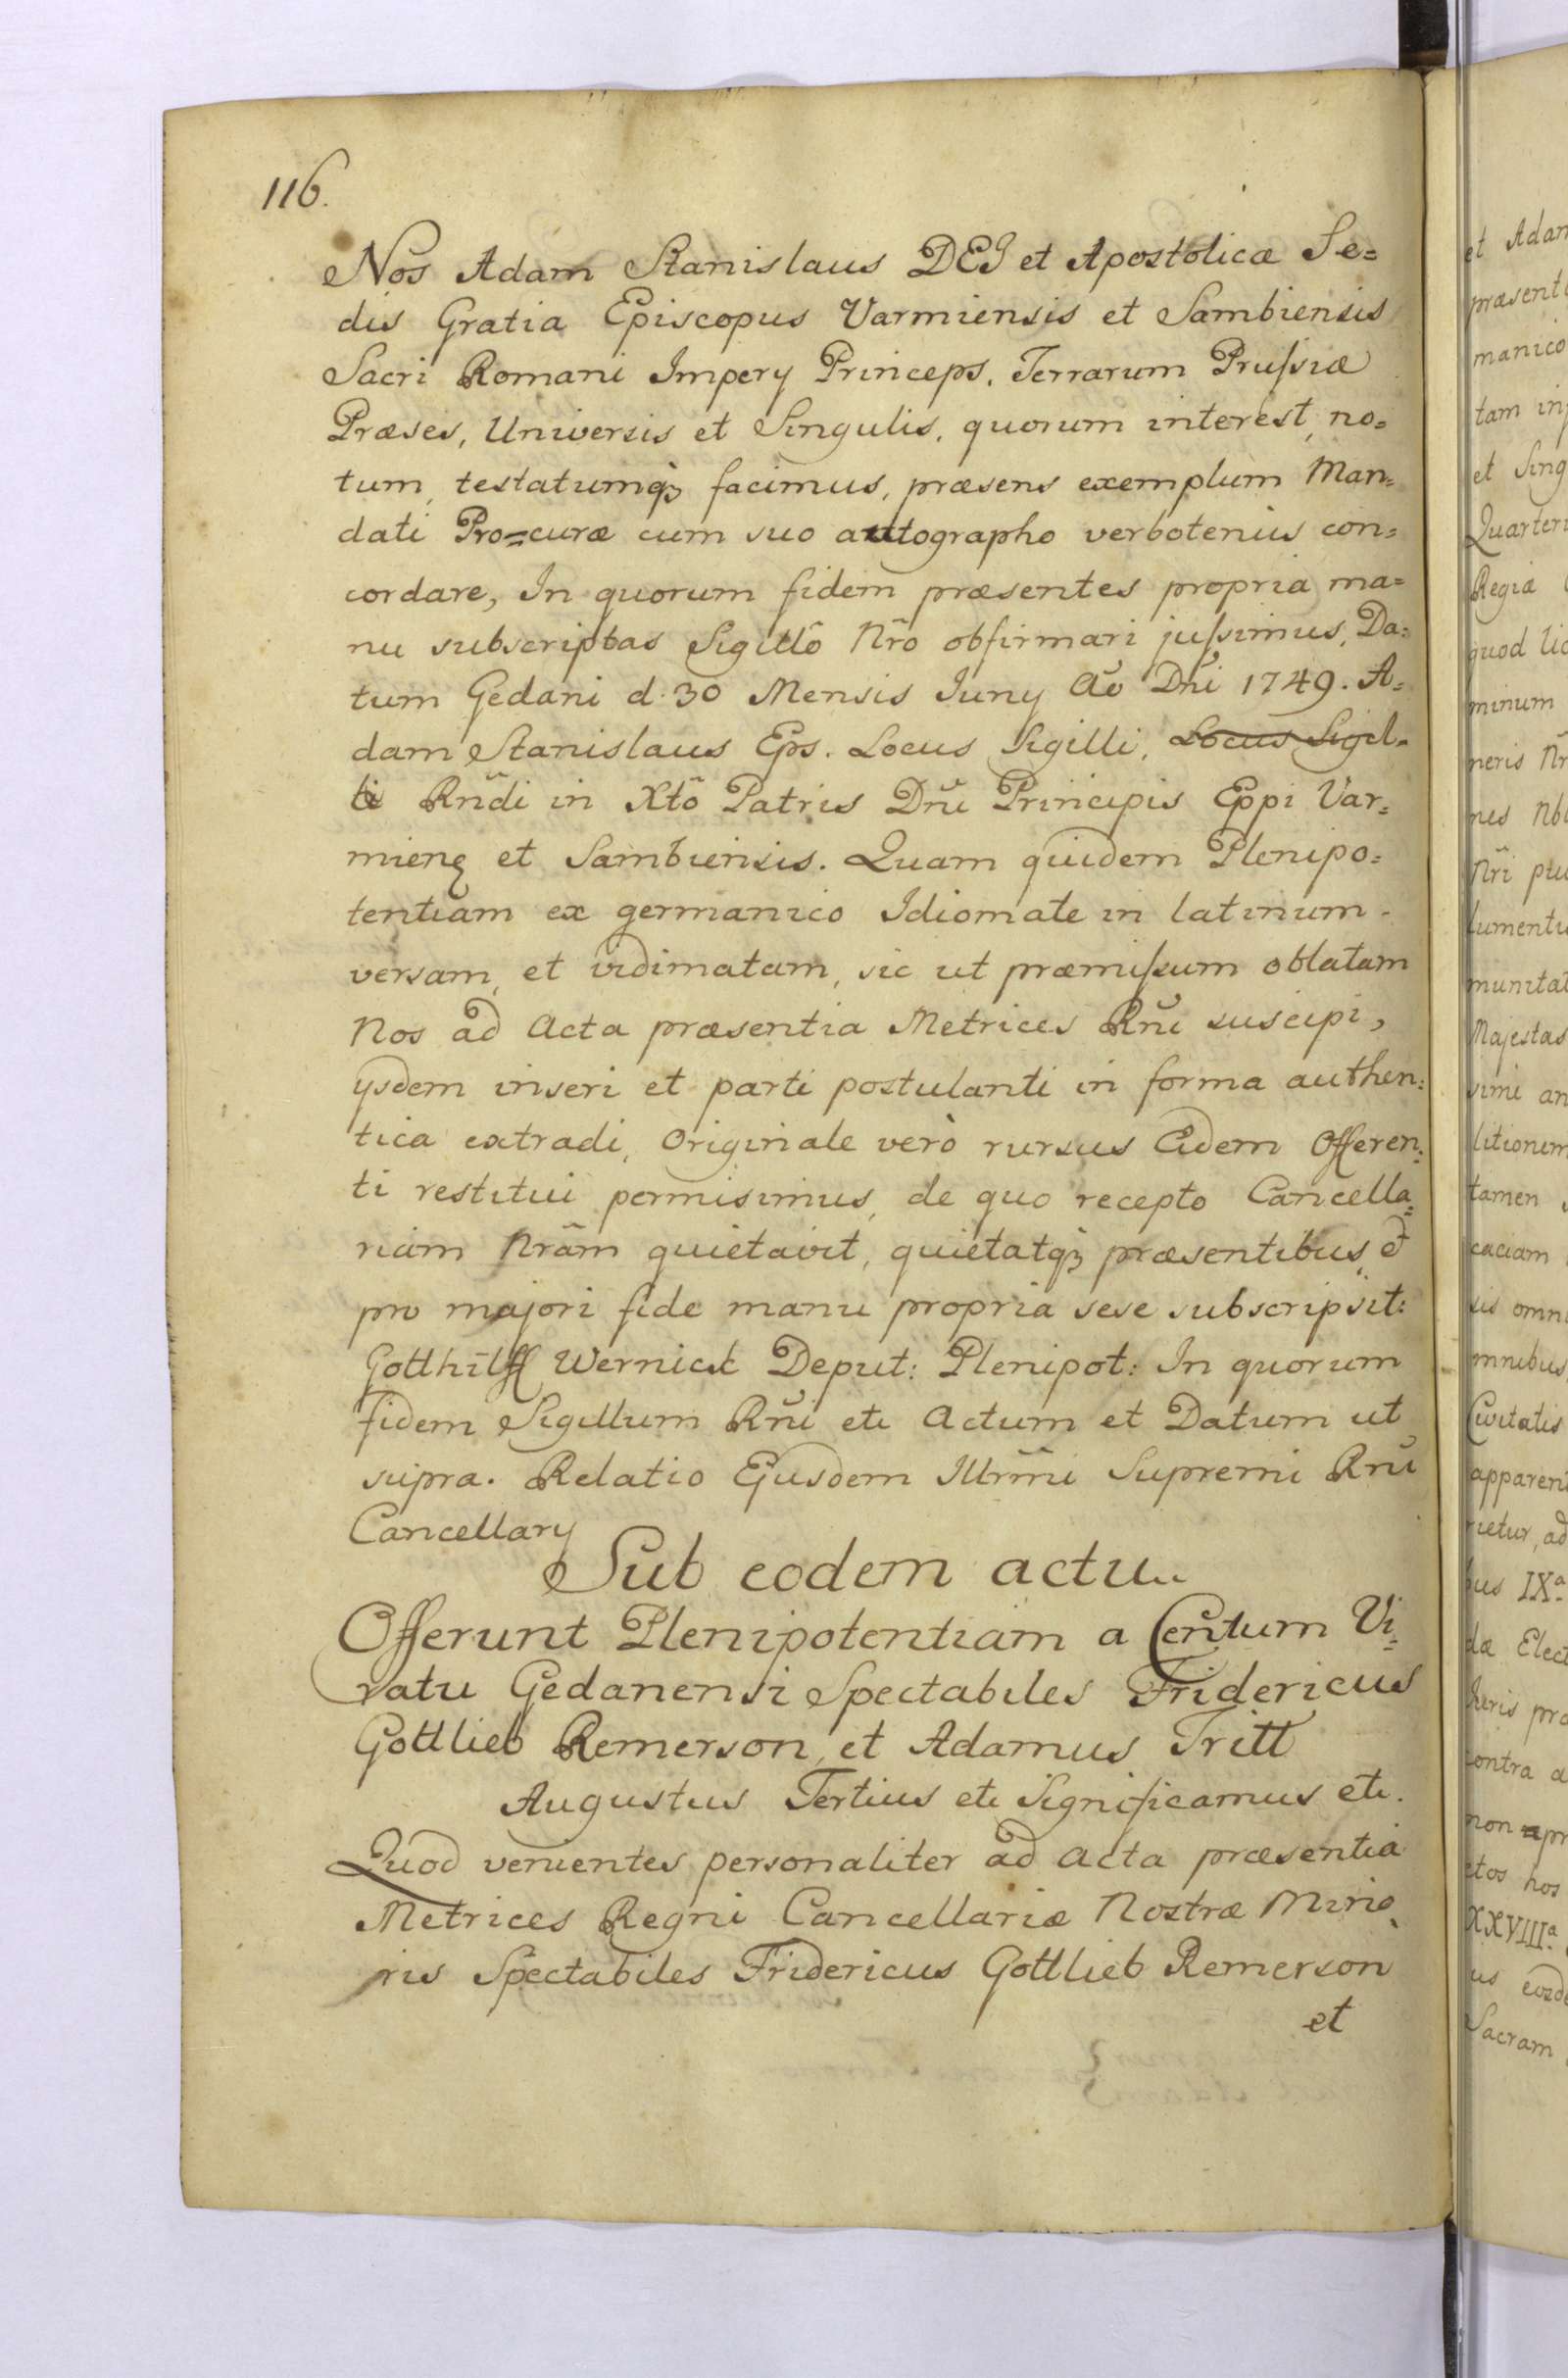 116.
Nos Adam Stanislaus DEI et Apostolicæ Se=
dis Gratia Episcopus Varmiensis et Sambiensis
Sacri Romani Impery Princeps, Terrarum Prussiæ
Præses, Universis et Singulis, quorum interest, no=
tum, testatumqȝ facimus, præsens exemplum Man=
dati Pro=curæ cum suo autographo verbotenius con=
cordare, In quorum fidem præsentes propria ma=
nu subscriptas Sigillô Nr̃o obfirmari jussimus, Da=
tum Gedani d. 30 Mensis Juny Aõ Dñi 1749. A=
dam Stanislaus Eps. Locus Sigilli, Locus Sigil=
li Rñdi in Xtõ Patris Dñi Principis Eppi Var=
mienȩ et Sambiensis. Quam quidem Plenipo=
tentiam ex germanico Idiomate in latinum
versam, et vidimatam, sic ut præmissum oblatam
Nos ad Acta præsentia Metrices Rñi suscipi,
ysdem inseri et parti postulanti in forma authen=
tica extradi, Originale verò rursus Eidem Offeren=
ti restitui permisimus, de quo recepto Cancella=
riam Nr̃am quietavit, quietatqȝ præsentibus, et
pro majori fide manu propria sese subscripsit:
Gotthilff Wernick Deput: Plenipot: In quorum
fidem Sigillum Rñi etc Actum et Datum ut
supra. Relatio Ejusdem Illrm̃i Supremi Rñi
Cancellary
Sub eodem actu
Offerunt Plenipotentiam a Centum Vi=
ratu Gedanensi Spectabiles Fridericus
Gottlieb Remerson, et Adamus Tritt
Augustus Tertius etc Significamus etc.
Quod venientes personaliter ad Acta præsentia
Metrices Regni Cancellariæ Nostræ Mino=
ris Spectabiles Fridericus Gottlieb Remerson
et
et Adam
præsent
manico
tam in
et Sing
Quarter
Regia
quod lic
minum
neris Nr̃
nes Nb
Nr̃i
lumentu
munitat
Majestas
simi an
litionum
tamen
caciam
sis omn
mnibus
Civitatis
apparen
rietur, ad
bus IXª
dæ Elect
pro
contra a
non apr
ctos hos
XXVIIIª
us eosde
Sacram